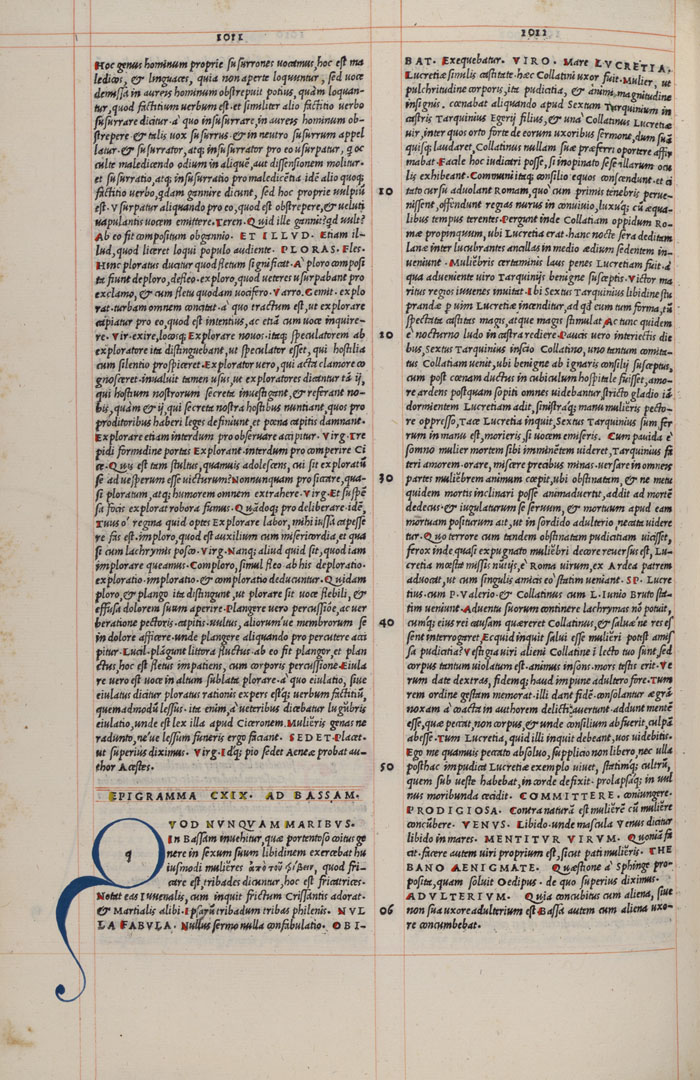 1011
Hoc genus hominum proprie susurrones uocamus, hoc est ma
ledicos, & linguaces, quia non aperte loquuntur, sed uoce
demissa in aureis hominum obstrepunt potius, quàm loquan-
tur, quod factitium uerbum est. et similiter alio factitio uerbo
susurrare dicitur. a' quo insusurrare, in aureis hominum ob-
strepere. & talis uox susurrus. & in neutro susurrum appel
latur. & susurrator, atq; insusurrator pro eo usurpatur, q oc
culte maledicendo odium in aliquē, aut dissensionem molitur.
et susurratio, atq; insusurratio pro maledicētia idē alio quoq;
factitio uerbo, qdam gannire dicunt, sed hoc proprie uulpiū
est. Vsurpatur aliquando pro eo, quod est obstrepere, & ueluti
uapulantis uocem emittere. Teren. Quid ille gannit? qd uult?
Ab eo fit compositum obgannio. ET ILLVD. Etiam il-
lud, quod liceret loqui populo audiente. PLORAS. Fles.
Hinc ploratus dicitur quod fletum significat. A' ploro composi
ta fiunt deploro, defleo. exploro, quod ueteres usurpabant pro
exclamo, & cum fletu quodam uocifero. Varro. Gemit. explo
rat. turbam omnem concitat. a' quo tractum est, ut explorare
capiatur pro eo, quod est intentius, ac etiā cum uoce inquire-
re. Vir. exire, locosq; Explorare nouos. itaq; speculatorem ab
exploratore ita distinguebant, ut speculator esset, qui hostilia
cum silentio prospiceret. Explorator uero, qui acta clamore co
gnosceret. inualuit tamen usus, ut exploratores dicantur tā ij,
qui hostium nostrorum secreta inuestigent, & referant no-
bis, quàm & ij, qui secreta nostra hostibus nuntiant, quos pro
proditoribus haberi leges definiunt, et poena capitis damnant.
Explorare etiam interdum pro obseruare accipitur. Virg. Ire
pidi formidine portas Explorant. interdum pro comperire Ci
ce. Quis est tam stultus, quamuis adolescens, cui sit exploratū
se ad uesperum esse uicturum? Nonnunquam pro siccare, qua-
si ploratum, atq; humorem omnem extrahere. Virg. Et suspē
sa focis explorat robora fumus. Quādoq; pro deliberare. idē,
Tuus o' regina quid optes Explorare labor, mihi iussa capesse
re fas est. imploro, quod est auxilium cum misericordia, et qua
si cum lachrymis posco. Virg. Nanq; aliud quid sit, quod iam
implorare queamus. Comploro, simul fleo ab his deploratio.
exploratio. imploratio. & comploratio deducuntur. Quidam
ploro, & plango ita distingunt, ut plorare sit uoce flebili, &
effusa dolorem suum aperire. Plangere uero percussiōe, ac uer
beratione pectoris. capitis. uultus, aliorum'ue membrorum se
in dolore afficere. unde plangere aliquando pro percutere acci
pitur. Lucil. plāgunt littora fluctus. ab eo fit plangor, et plan
ctus, hoc est fletus impatiens, cum corporis percussione. Eiula
re uero est uoce in altum sublata plorare. a' quo eiulatio, siue
eiulatus dicitur ploratus rationis expers estq; uerbum factitiū,
quemadmodū lessus. ita enim, a' ueteribus dicebatur lugubris
eiulatio, unde est lex illa apud Ciceronem. Mulieris genas ne
radunto, ne'ue lessum funeris ergo faciant. SEDET. Placet.
ut superius diximus. Virg. Idq; pio sedet Aeneæ probat au-
thor Acestes.
EPIGRAMMA CXIX. AD BASSAM.
q
VOD NVNQVAM MARIBVS.
In Bassam inuehitur, quæ portentoso coitus ge
nere in sexum suum libidinem exercebat hu
iusmodi mulieres ἀπὸ τοῦ τρίβειν, quod fri-
care est, tribades dicuntur, hoc est fricatrices.
Notat eas Iuuenalis, cum inquit frictum Crissantis adorat.
& Martialis alibi. Ipsarū tribadum tribas philenis. NVL
LA FABVLA. Nullus sermo nulla confabulatio. OBI-
10
20
30
40
50
06
1011
BAT. Exequebatur. VIRO. Mare LVCRETIA.
Lucretiæ similis castitate. hæc Collatini uxor fuit. Mulier, ut
pulchritudine corporis, ita pudicitia, & animi magnitudine
insignis. coenabat aliquando apud Sextum Tarquinium in
castris Tarquinius Egerij filius, & una' Collatinus Lucretiæ
uir, inter quos orto forte de eorum uxoribus sermone, dum suā
quisq; laudaret, Collatinus nullam suæ præferri oportere affir
mabat. Facile hoc iudicari posse, si inopinato sese illarum ocu
lis exhibeant. Communi itaq; consilio equos conscendunt. et ci
tato cursu aduolant Romam, quo cum primis tenebris perue-
nissent, offendunt regias nurus in conuiuio, luxuq; cū æqua-
libus tempus terentes. Pergunt inde Collatiam oppidum Ro-
mæ propinquum, ubi Lucretia erat. hanc nocte sera deditam
Lanæ inter lucubrantes ancillas in medio ædium sedentem in-
ueniunt. Muliebris certaminis laus penes Lucretiam fuit. a'
qua adueniente uiro Tarquinijs benigne susceptis. Victor ma
ritus regios iuuenes inuitat. Ibi Sextus Tarquinius libidine stu
prandæ p uim Lucretiæ incenditur, ad qd cum tum forma, tū
spectata castitas magis, atque magis stimulat. Ac tunc quidem
e' nocturno ludo in castra rediere. Paucis uero interiectis die
bus, Sextus Tarquinius inscio Collatino, uno tantum comita-
tus Collatiam uenit, ubi benigne ab ignaris consilij susceptus,
cum post coenam ductus in cubiculum hospitale fuisset, amo-
re ardens postquam sopiti omnes uidebantur. stricto gladio iā
dormientem Lucretiam adit, sinistraq; manu mulieris pecto-
re oppresso, Tace Lucretia inquit, Sextus Tarquinius sum fer
rum in manu est, morieris, si uocem emiseris. Cum pauida e'
somno mulier mortem sibi imminētem uideret, Tarquinius fa
teri amorem. orare, miscere precibus minas. uersare in omneis
partes muliebrem animum coepit, ubi obstinatam, & ne metu
quidem mortis inclinari posse animaduertit, addit ad mortē
dedecus. & iugulaturum se seruum, & mortuum apud eam
mortuam positurum ait, ut in sordido adulterio necata uidere
tur. Quo terrore cum tandem obstinatam pudicitiam uicisset,
ferox inde quasi expugnato muliebri decore reuersus est, Lu-
cretia moesta missis nuntijs, e' Roma uirum, ex Ardea patrem
aduocat, ut cum singulis amicis eo' statim ueniant. SP. Lucre
tius cum P. Valerio. & Collatinus cum L. Iunio Bruto sta-
tim ueniunt. Aduentu suorum continere lachrymas nō potuit,
cumq; eius rei causam quæreret Collatinus, & saluæ ne res es
sent interrogaret. Ecquid inquit salui esse mulieri potest amis
sa pudicitia? Vestigia uiri alieni Collatine i lecto tuo sunt, sed
corpus tantum uiolatum est. animus insons. mors testis erit. Ve
rum date dextras, fidemq; haud impune adultero fore. Tum
rem ordine gestam memorat. illi dant fidē. consolantur ægrā.
noxam a' coacta in authorem delicti auertunt. addunt mentē
esse, quæ peccat, non corpus, & unde consilium abfuerit, culpā
abesse. Tum Lucretia, quid illi inquit debeant, uos uidebitis.
Ego me quamuis peccato absoluo, supplicio non libero, nec ulla
posthac impudica Lucretiæ exemplo uiuet, statimq; cultrū,
quem sub ueste habebat, in corde defixit. prolapsaq; in uul
nus moribunda cecidit. COMMITTERE. coniungere.
PRODIGIOSA. Contra naturā est mulierē cū muliere
concūbere. VENVS. Libido. unde mascula Venus dicitur
libido in mares. MENTITVR VIRVM. Quoniā fa
cit. facere autem uiri proprium est, sicut pati mulieris. THE
BANO AENIGMATE. Quæstione a' Sphinge pro-
posita, quam soluit Oedipus. de quo superius diximus.
ADVLTERIVM. Quia concubitus cum aliena, siue
non sua uxore adulterium est Bassa autem cum aliena uxo-
re concumbebat.